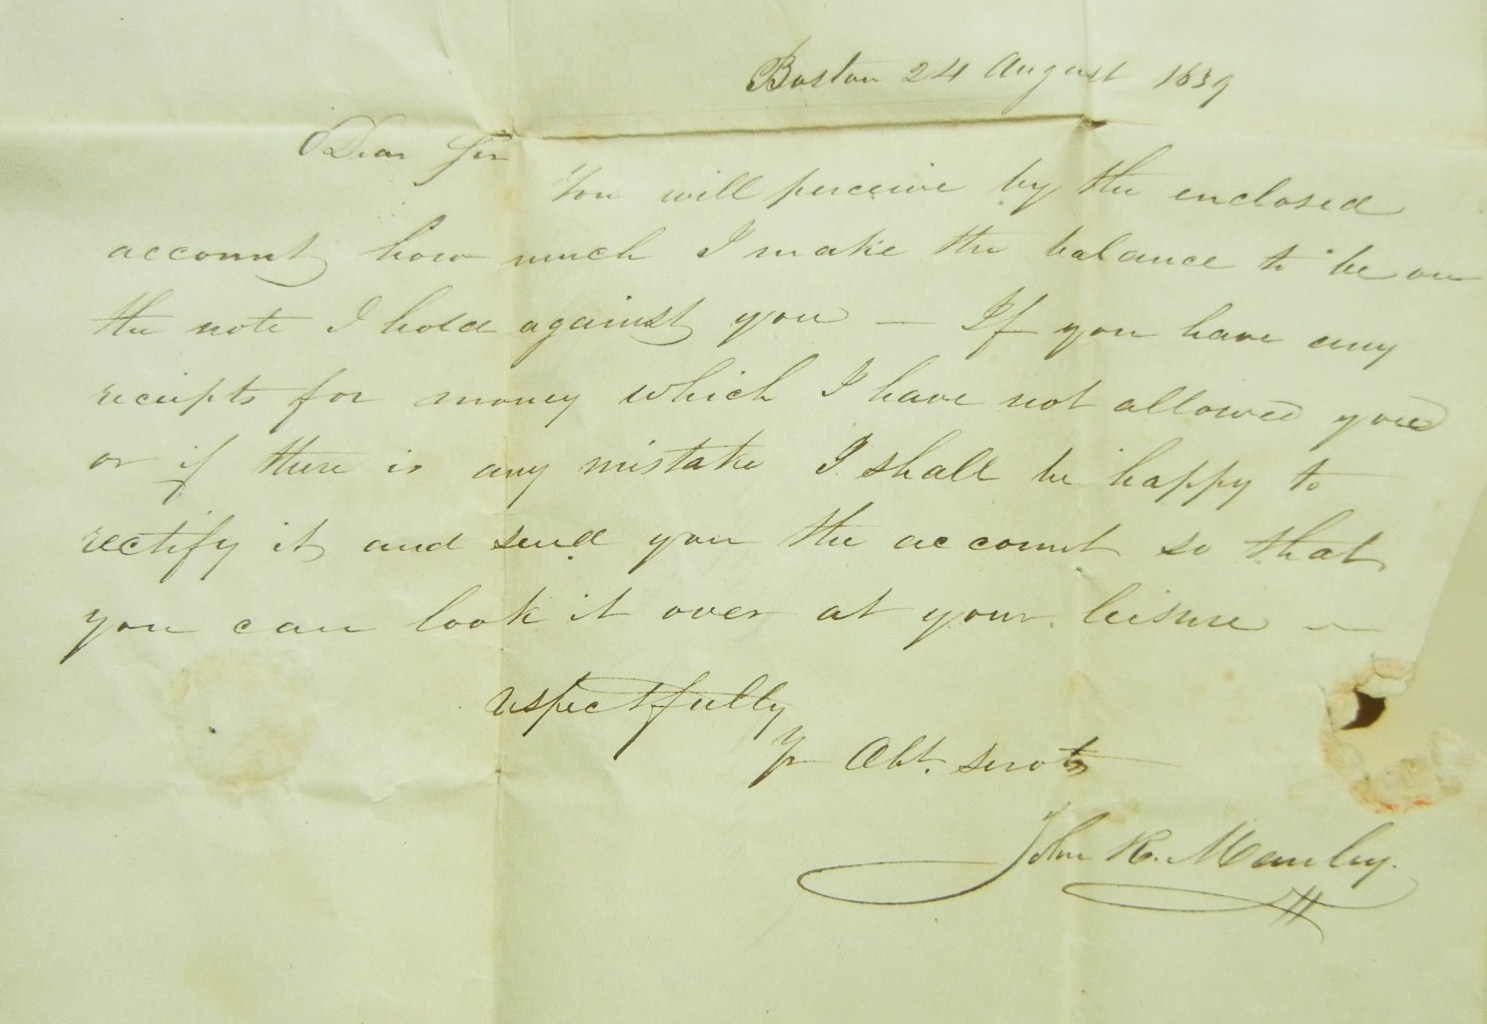 Boston 24 August 1839
Dear Sir
You will perceive by the enclosed
account how much I make the balance to be on
the note I hold against you — If you have any
reciepts for money which I have not allowed you
or if there is any mistake I shall be happy to
rectify it and send you the account so that
you can look it over at your leisure —
respectfully
Yr Obt. servt
John R. Manley.